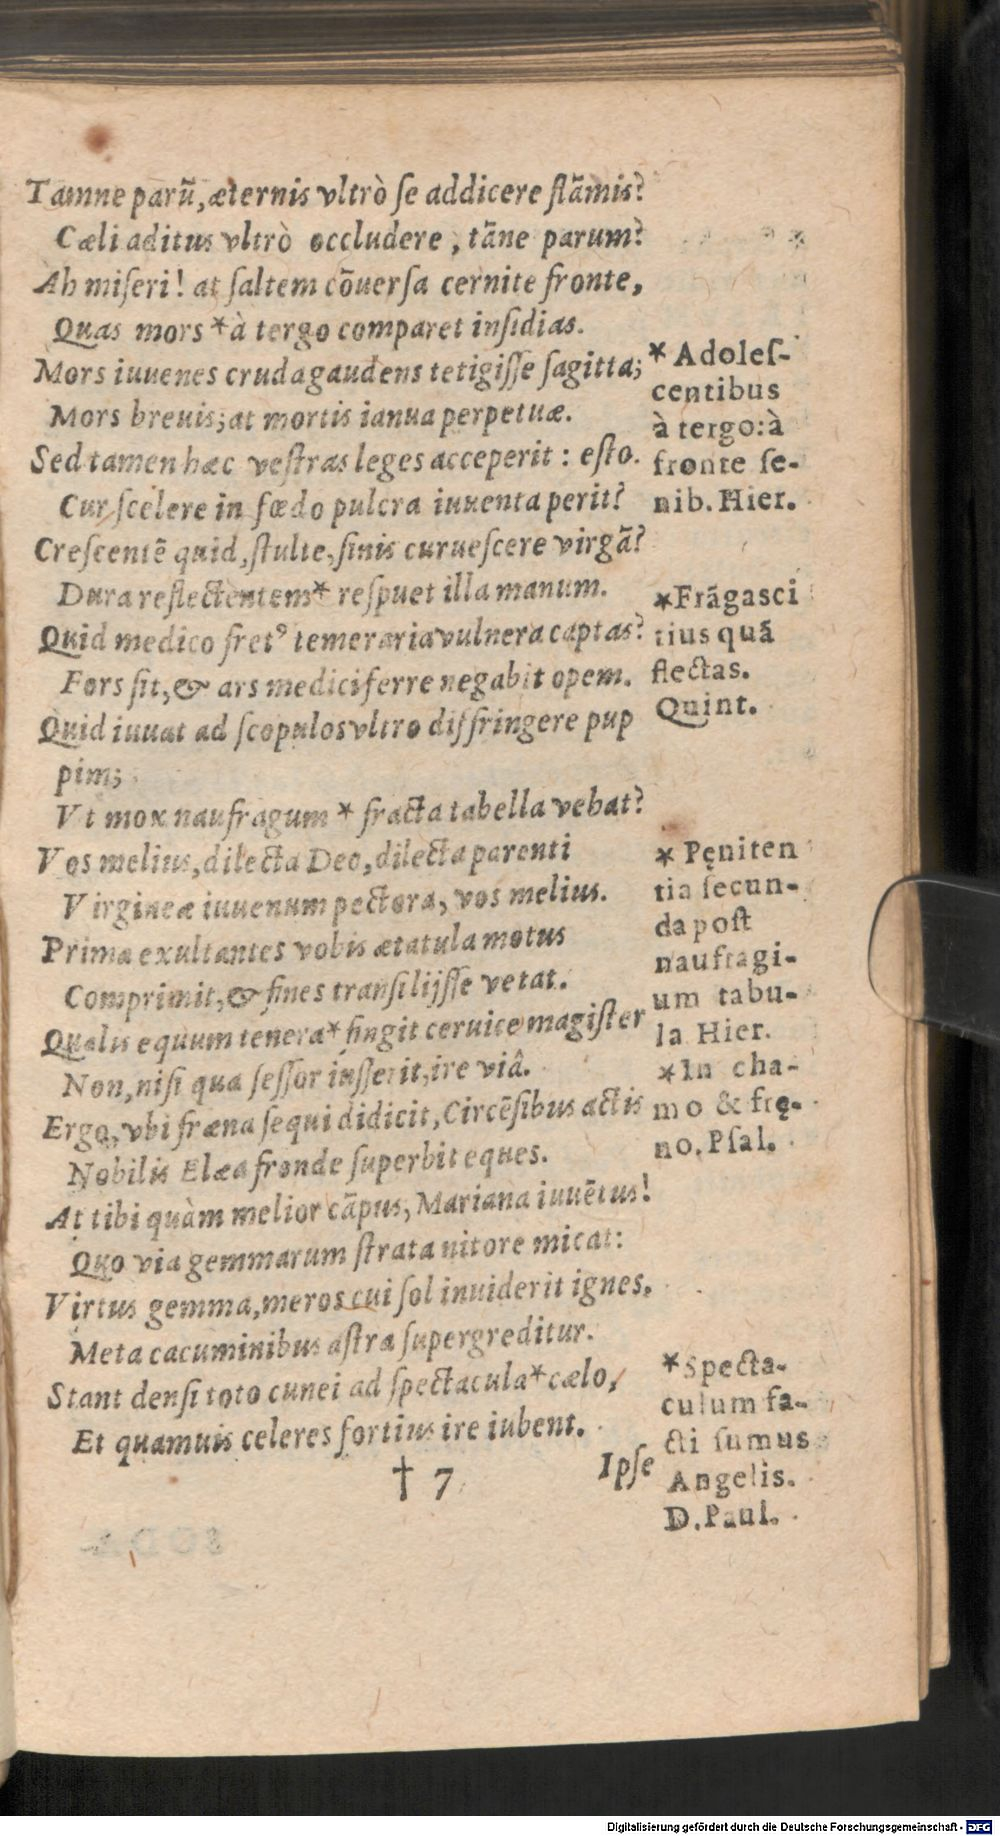 Tamne parũ, æternis vltrò ſe addicere flãmis?
Cæli aditus vltrò occludere, tãne parum?
Ah miſeri! at ſaltem cõuerſa cernite fronte,
Quas mors * à tergo comparet inſidias.
Mors iuuenes cruda gaudens tetigiſſe ſagitta;
Mors breuis; at mortis ianua perpetuæ.
Sed tamen hæc veſtras leges acceperit: eſto.
Cur ſcelere in fœdo pulcra iuuenta perit?
Creſcentẽ quid, ſtulte, ſinis curueſcere virgã?
Dura reflectentem* reſpuet illa manum.
Quid medico fretꝰ temeraria vulnera captas?
Fors ſit, & ars medici ferre negabit opem.
Quid iuuat ad ſcopulos vltro diffringere pup
pim;
Vt mox naufragum * fracta tabella vehat?
Vos melius, dilecta Deo, dilecta parenti
Virgineæ iuuenum pectora, vos melius.
Prima exultantes vobis ætatula motus
Comprimit, & fines tranſilijſſe vetat.
Qualis equum tenera* fingit ceruice magiſter
Non, niſi qua ſeſſor iuſſerit, ire viâ.
Ergo, vbi fræna ſequi didicit, Circẽſibus actis
Nobilis Elæa fronde ſuperbit eques.
At tibi quàm melior cãpus, Mariana iuuẽtus!
Quo via gemmarum ſtrata nitore micat:
Virtus gemma, meros cui ſol inuiderit ignes.
Meta cacuminibus aſtra ſupergreditur.
Stant denſi toto cunei ad ſpectacula* cælo,
Et quamuis celeres fortius ire iubent.
† 7
Ipſe
* Adoleſ-
centibus
à tergo: à
fronte ſe-
nib. Hier.
*Frãgas ci
tius quã
flectas.
Quint.
* Pęniten
tia ſecun-
da poſt
naufragi-
um tabu-
la Hier.
*In cha-
mo & frę-
no. Pſal.
*Specta-
culum fa-
cti ſumus
Angelis.
D. Paul.
Digitalisierung gefördert durch die Deutsche Forschungsgemeinschaft - DFG